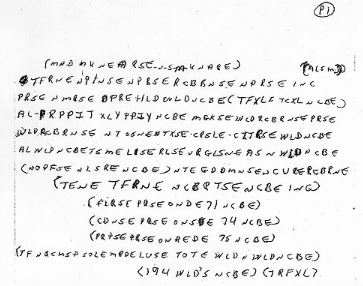 (P1)
(MND MKNEARSE-N-S-M-KNARE) (ALSM)
TFRNE NPINSE NPBSE RCBRNSE NPRSE INC
PRSE NMRSE OPRE HLD WLD NCBE (TFXLF TCXL NCBE)
AL-PRPPIT XLY PPIY NCBE MGKSE WLDRCBRNSE PRSE
WLDRCBRNSE NTSSNENTXSE-CRSLE-CITRSE WLD NCBE
ALWLD NCBE TSME LRSE RLSE URGLSNE AS N WLD NCBE
(NOPFSE NLSRE NCBE) NTEGDDMNSENCURERCBRNE
(TENE TFRNE NCBRTSE NCBE ING)
(FLRSE PRSE ONDE 71 NCBE)
(CDNSE PRSE ONSDE 74 NCBE)
(PRTSE PRSE ONREDE 75 NCBE)
(TFNQCMSP SOLE MRDE LUSE TOTE WLD N WLD NCBE)
(194 WLD'S NCBE) (TRFXL)